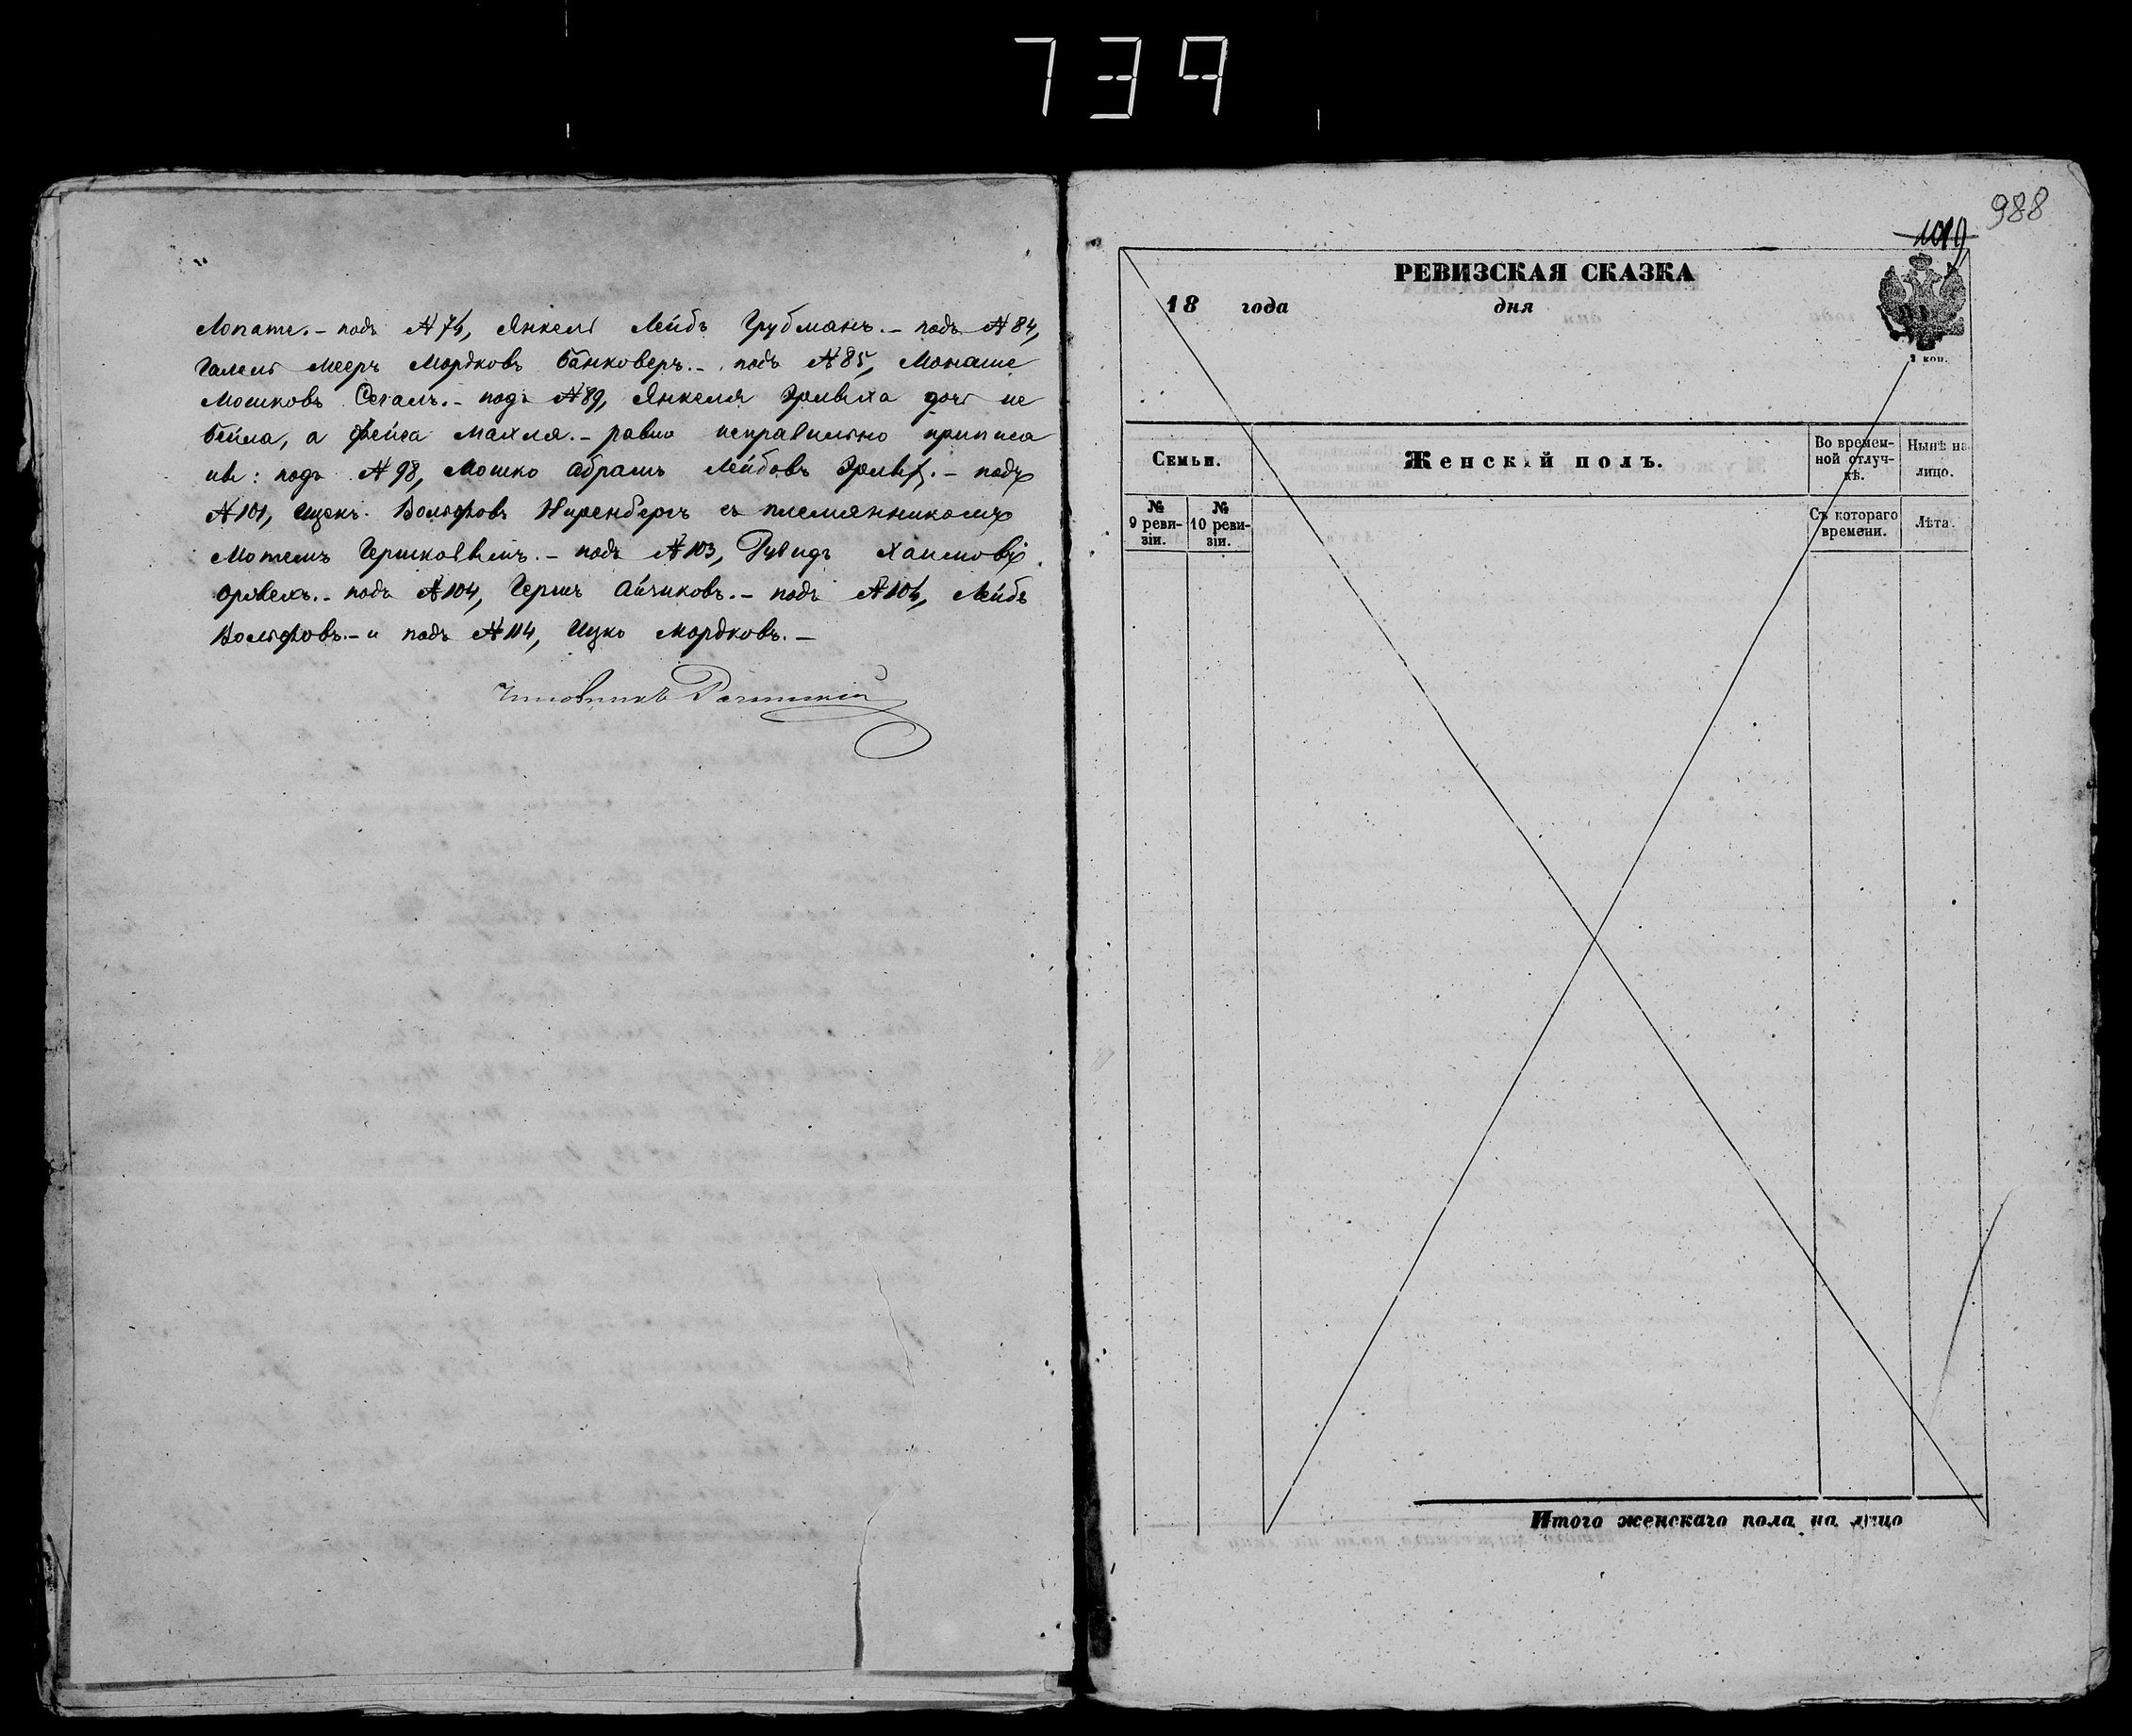 739
Лопате. – подъ №74, Янкель Лейбъ Грубманъ. – подъ №84,
Галель Мееръ Мордковъ Банковеръ. – подъ №85, Монаше
Мошковъ Сегалъ. – подъ №89, Янкеля дочь не
Бейла, а Фейга Махля. – равно неправильно приписа
ны: подъ №98, Мошко Абрамъ Лейбовъ – подъ
№101, Ицекъ Вольфовъ Ниренбергъ съ племянникомъ
Мотемъ Гершковымъ. – подъ №103, Хаимовъ
подъ №104, Гершъ Айзиковъ. – подъ Лейбъ
Вольфовъ. – и подъ №114, Ицко Мордковъ. –
Чиновникъ
988
1019
РЕВИЗСКАЯ СКАЗКА
18 года дня
1 коп.
Семьи.
Женскій полъ.
Во времен-
ной отлуч-
кѣ.
Нынѣ на
лицо.
№
9 реви-
зіи.
№
10 реви-
зіи.
Съ котораго
времени.
Лѣта.
Итого женскаго пола на лицо